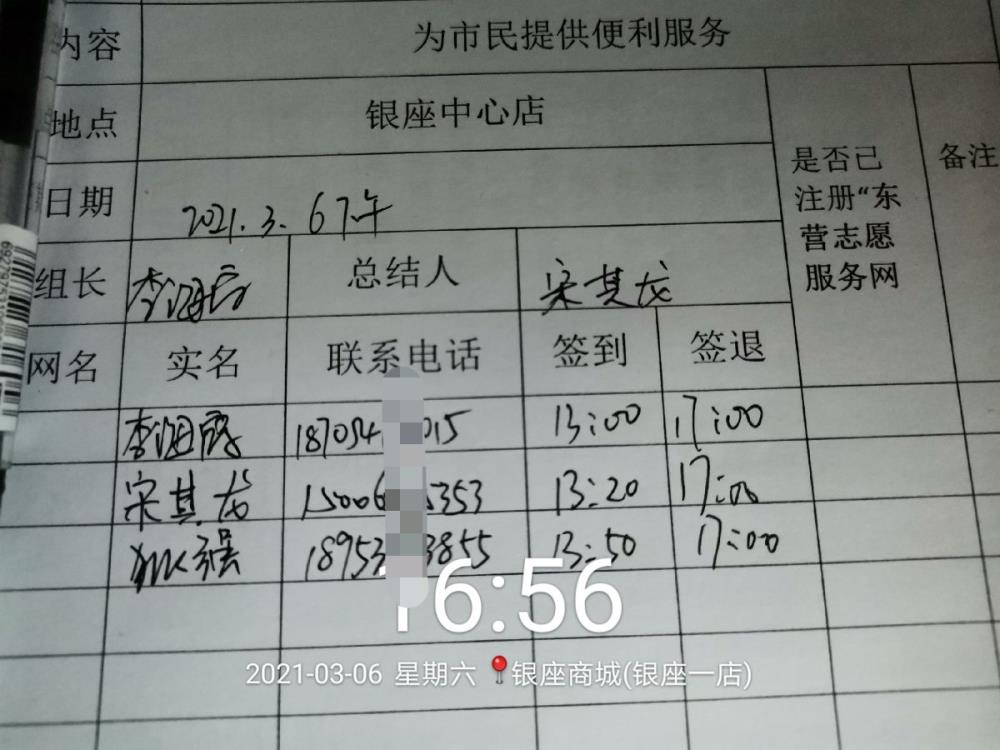 内容 为市民提供便利服务
地点 银座中心店
是否已注册“东营志愿服务网
备注
日期 2021.3.6下午
组长 李海霞 总结人 宋其龙
网名 实名 联系电话 签到 签退
李海霞 187054 015 13:00 17:00
宋其龙 15006 5353 13:20 17:00
18953 3855 13:50 17:00
16:56
2021-03-06 星期六 银座商城(银座一店)